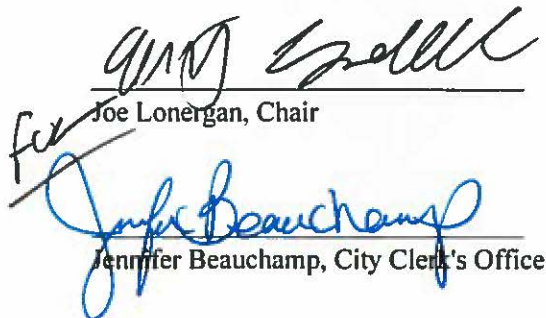 for
Joe Lonergan, Chair
Jennifer Beauchamp
Jennifer Beauchamp, City Clerk's Office